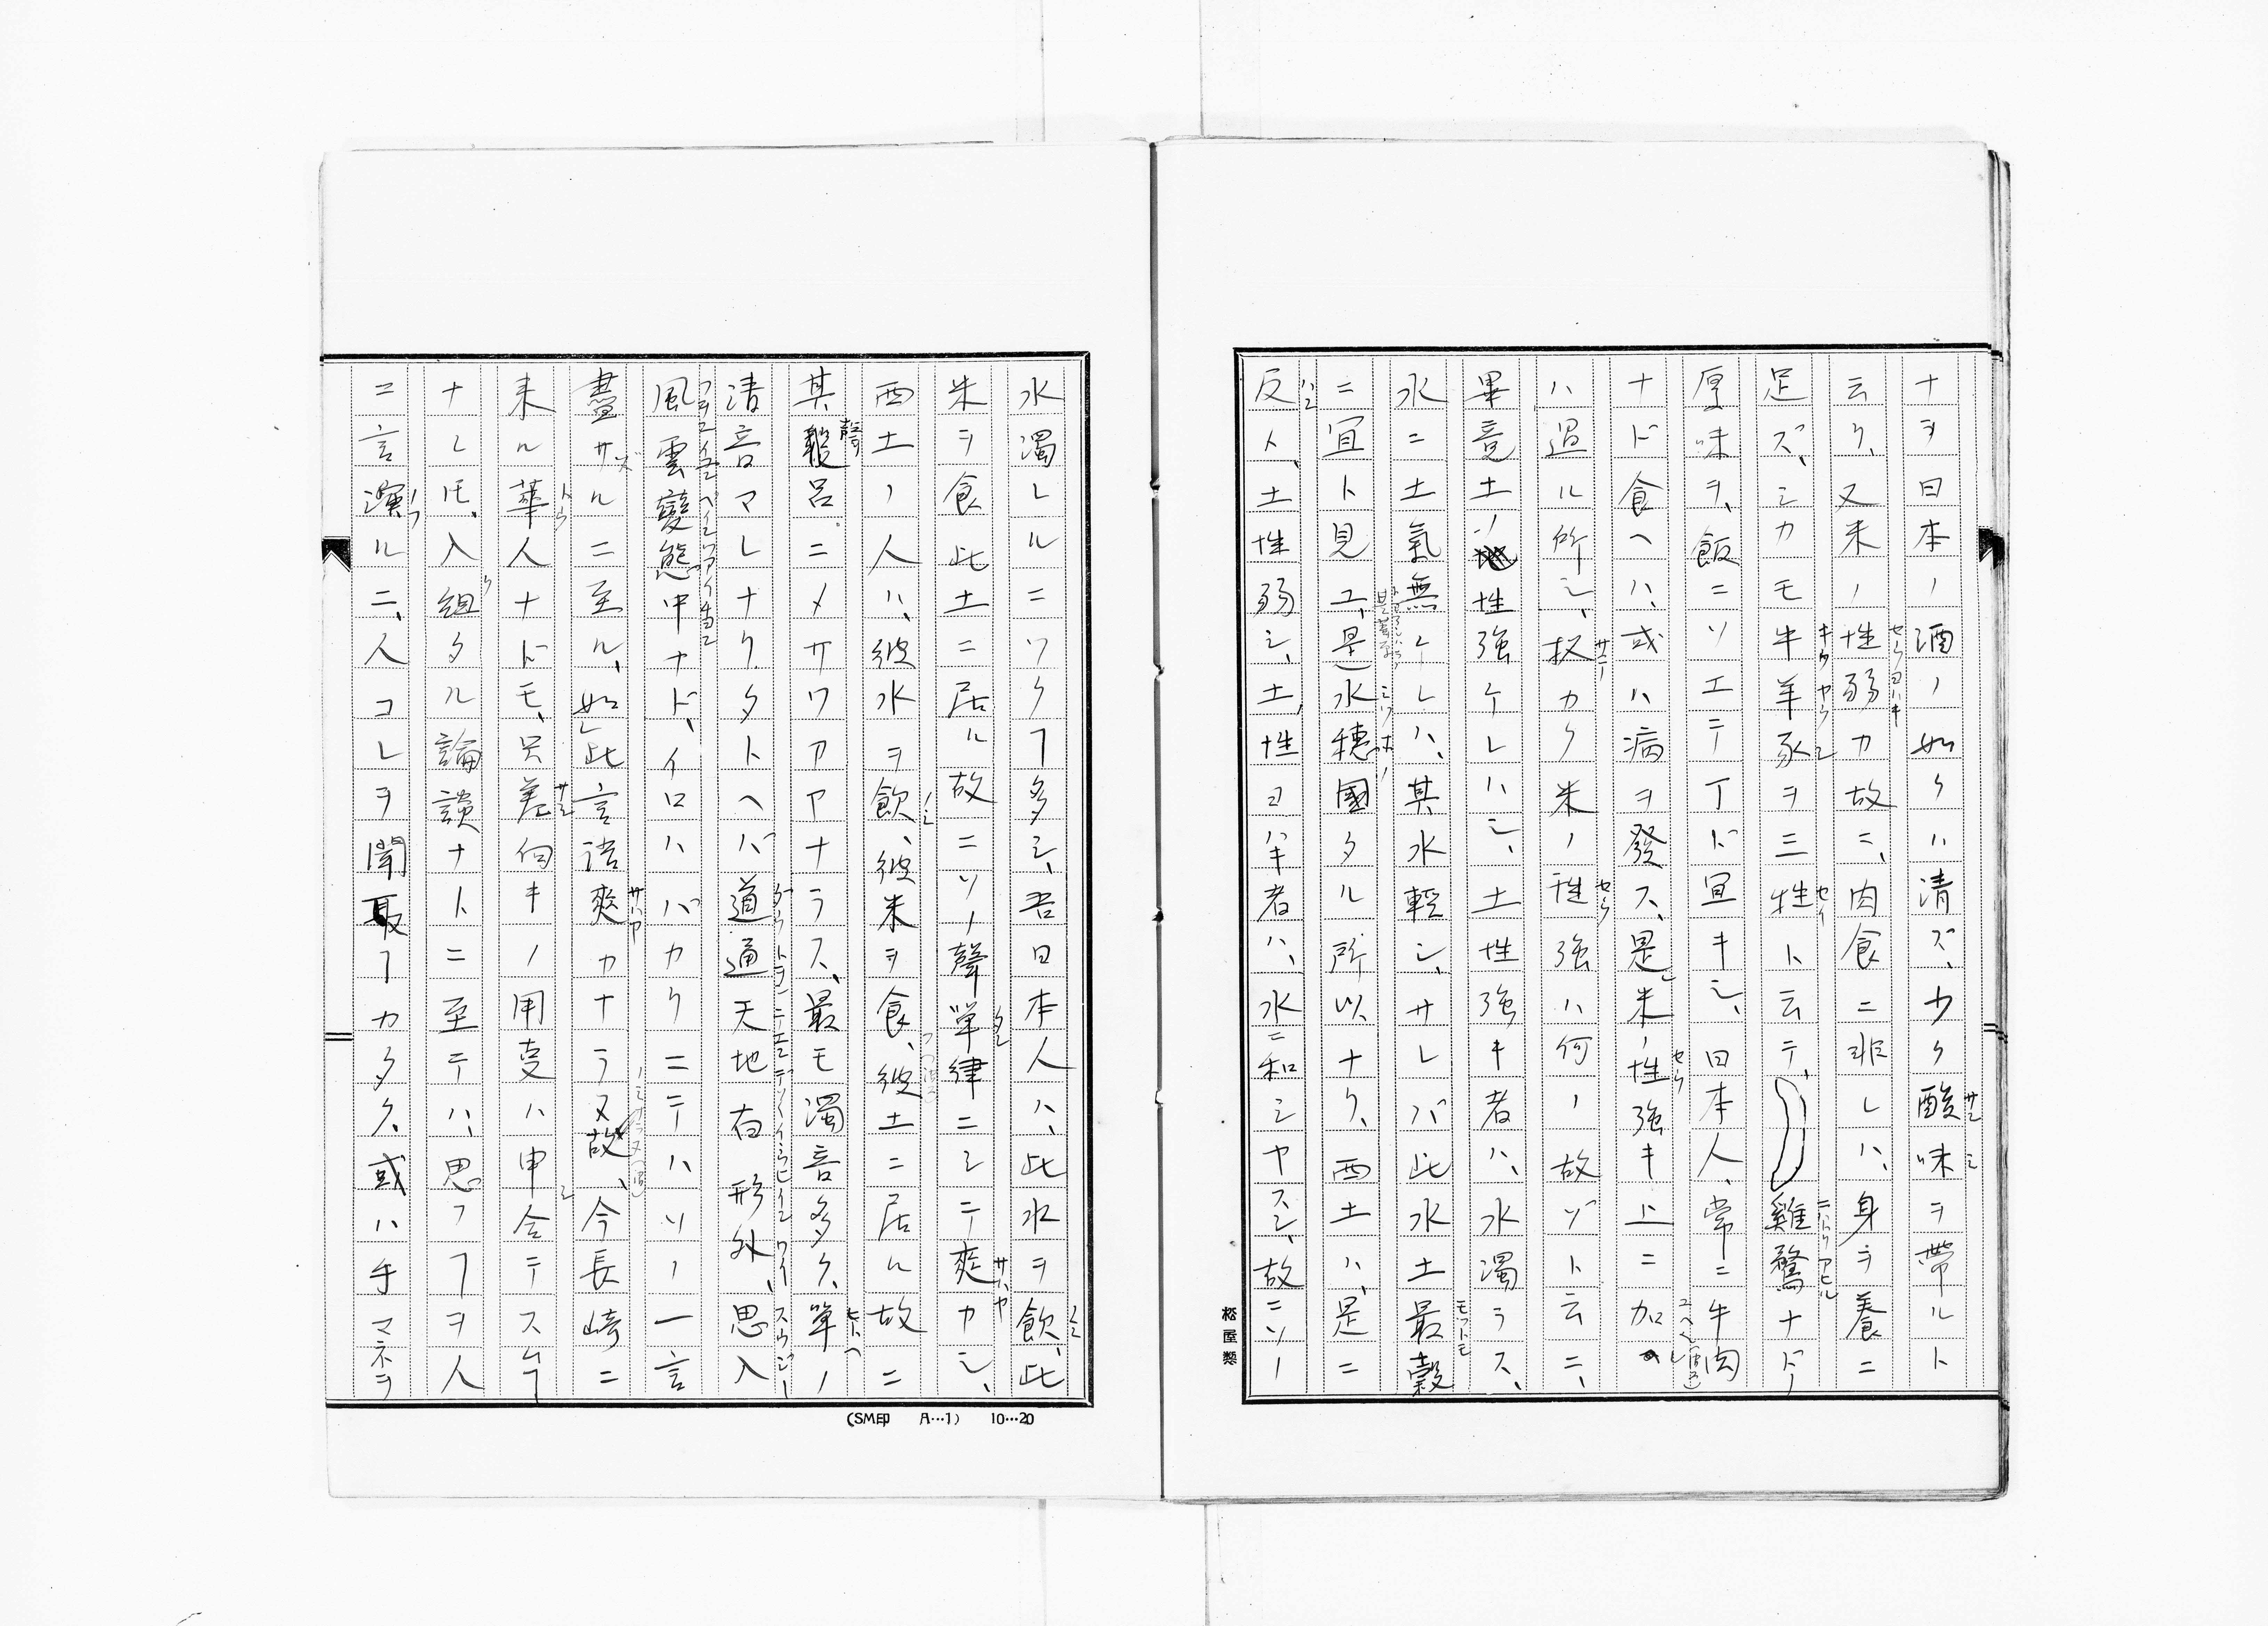 ナヲ日本ノ酒ノ如クハ清ズ、少ク酸味ヲ帶ルト
云リ、又米ノ性弱カ故ニ、肉食ニ非レハ、身ヲ養ニ
足ズ、シカモ牛羊豕ヲ三牲ト云テ、雞鶩ナド
厚味ヲ、飯ニソエテ丁ド宜キシ、日本人、常ニ牛肉
ナド食ヘハ、或ハ病ヲ發ス、是米ノ性強キ上ニ加
ハ過ル所シ、扨カク米ノ性強ハ何ノ故ゾト云ニ、
畢竟土ノ性強ケレハシ、土性強キ者ハ、水濁ラス、
水ニ土氣無ケレハ、其水輕シ、サレバ此水土最穀
ニ宜ト見エ、是水穗國タル所以ナリ、西土ハ、是ニ
反ト、土性弱シ、土性ヨハキ者ハ、水ニ和シヤスシ、故ニソノ
水濁レルニツクヿ多シ、吾日本人ハ、此水ヲ飲、此
米ヲ食此土ニ居ル故ニソノ聲單律ニシテ爽カシ、
西土ノ人ハ、彼水ヲ飲、彼米ヲ食、彼土ニ居ル故ニ
其聲呂ニメサワアアナラス、最モ濁音多ク、單ノ
清音マレナリ、タトヘバ道通天地有形外、思入
風雲變態中ナド、イロハバカリニテハソノ一言
盡サルニ至ル、如此言語爽カナラヌ故、今長崎ニ
来ル華人ナドモ、只差向キノ用叓ハ申合テスムヿ
ナレ𪜈、入組タル論談ナトニ至テハ、思フヿヲ人
ニ言演ルニ、人コレヲ聞取ヿカタク、或ハ手マネヲ
松屋製
(SM印 A…1) 10…20